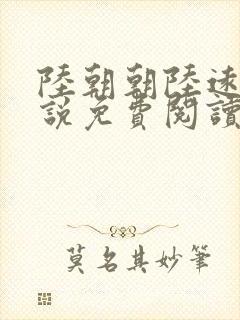 陸朝朝陸遠
說免費閱讀
莫名其妙筆